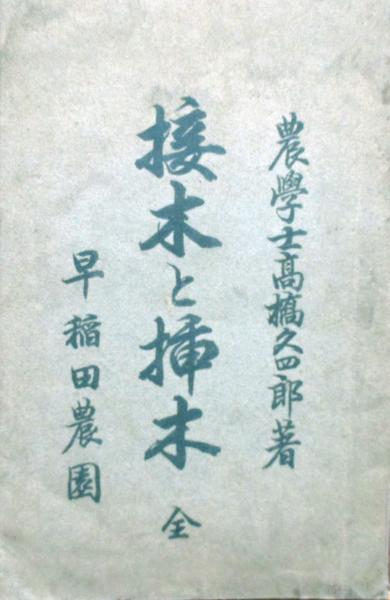 農學士高橋久四郎著
接木と挿木 全
早稲田農園